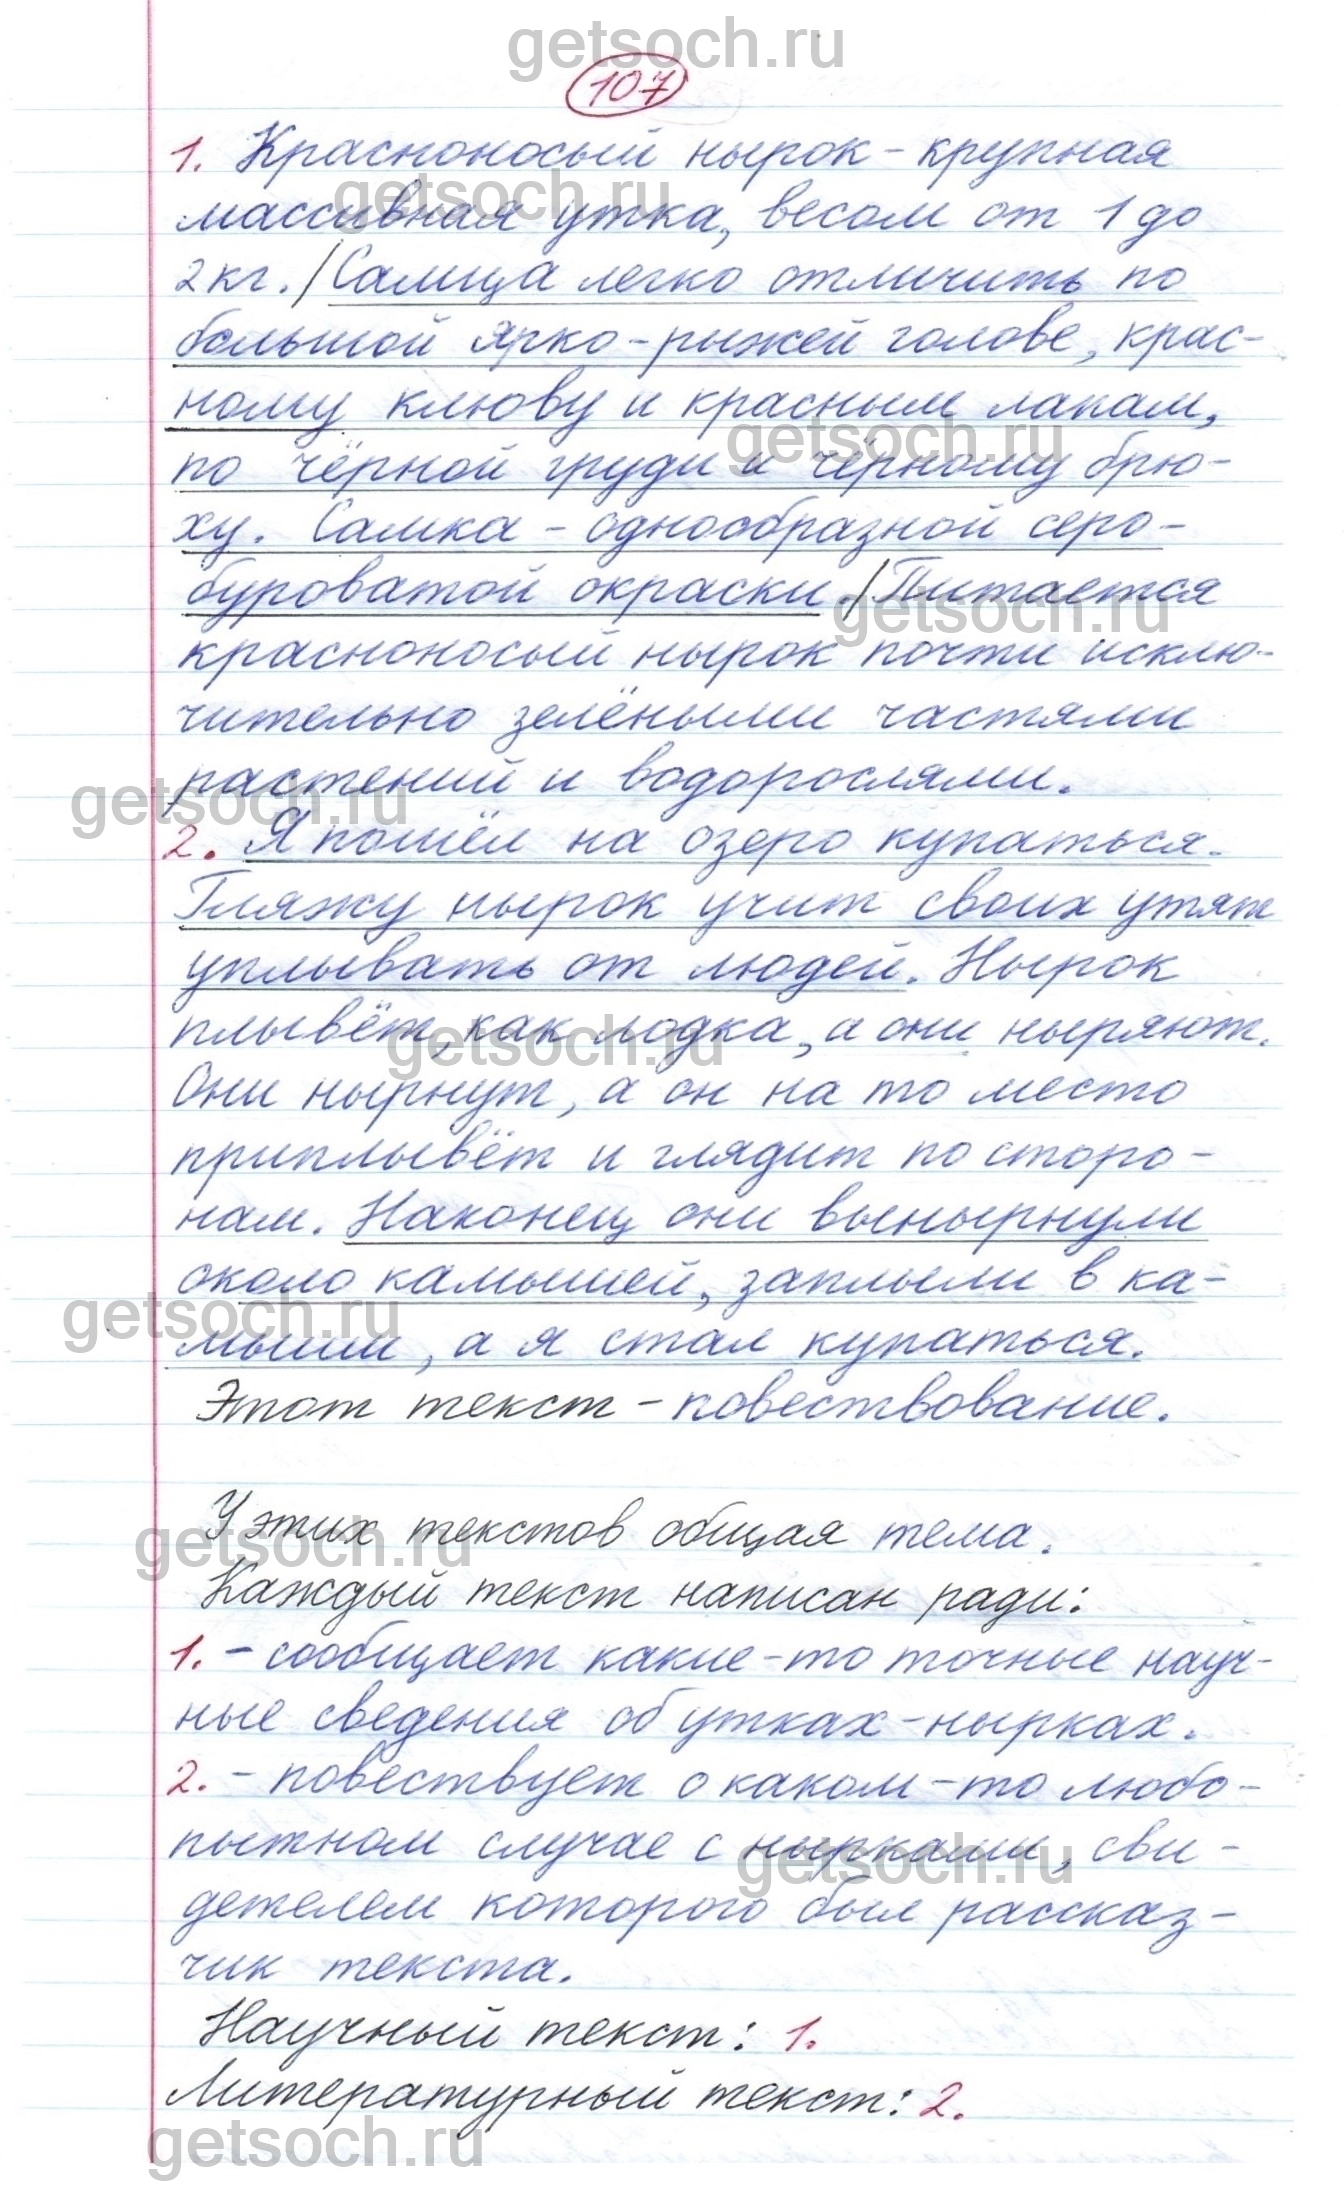 getsoch.ru
107
1. Красноносый нырок - крупная
getsoch.ru
массивная утка, весом от 1 до
2 кг. / Самца легко отличить по
большой ярко-рыжей голове, крас-
ному клюву и красным лапам,
getsoch.ru
по чёрной груди и чёрному брю-
ху. Самка - однообразной серо-
буроватой окраски. / Питается
getsoch.ru
красноносый нырок почти исклю-
чительно зелёными частями
растений и водорослями.
getsoch.ru
2. Я пошёл на озеро купаться.
Гляжу нырок учит своих утят
уплывать от людей. Нырок
плывёт, как лодка, а они ныряют.
getsoch.ru
Они нырнут, а он на то место
приплывёт и глядит по сторо-
нам. Наконец они вынырнули
около камышей, заплыли в ка-
getsoch.ru
мыши, а я стал купаться.
Этот текст - повествование.
У этих текстов общая тема.
getsoch.ru
Каждый текст написан ради:
1. - сообщает какие-то точные науч-
ные сведения об утках-нырках.
2. - повествует о каком-то любо-
пытном случае с нырками, сви-
getsoch.ru
детелем которого был рассказ-
чик текста.
Научный текст: 1.
Литературный текст: 2.
getsoch.ru